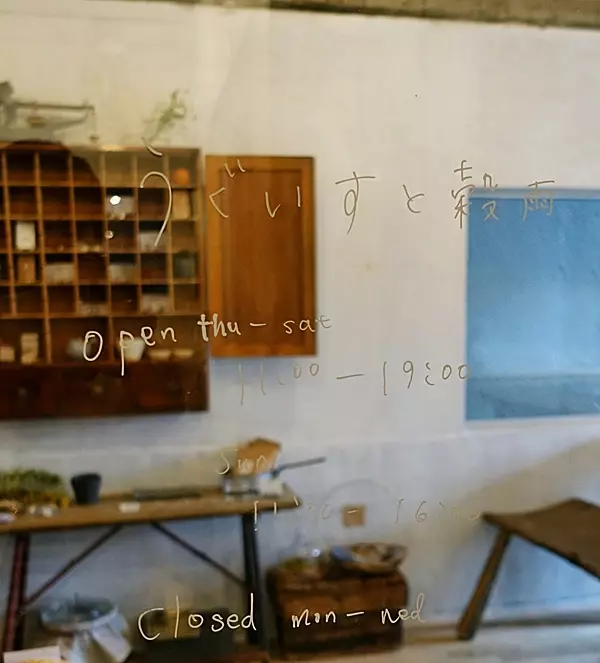 うぐいすと穀雨
Open thu - sat
11:00 - 19:00
Sun
11:00 - 16:00
Closed mon - wed